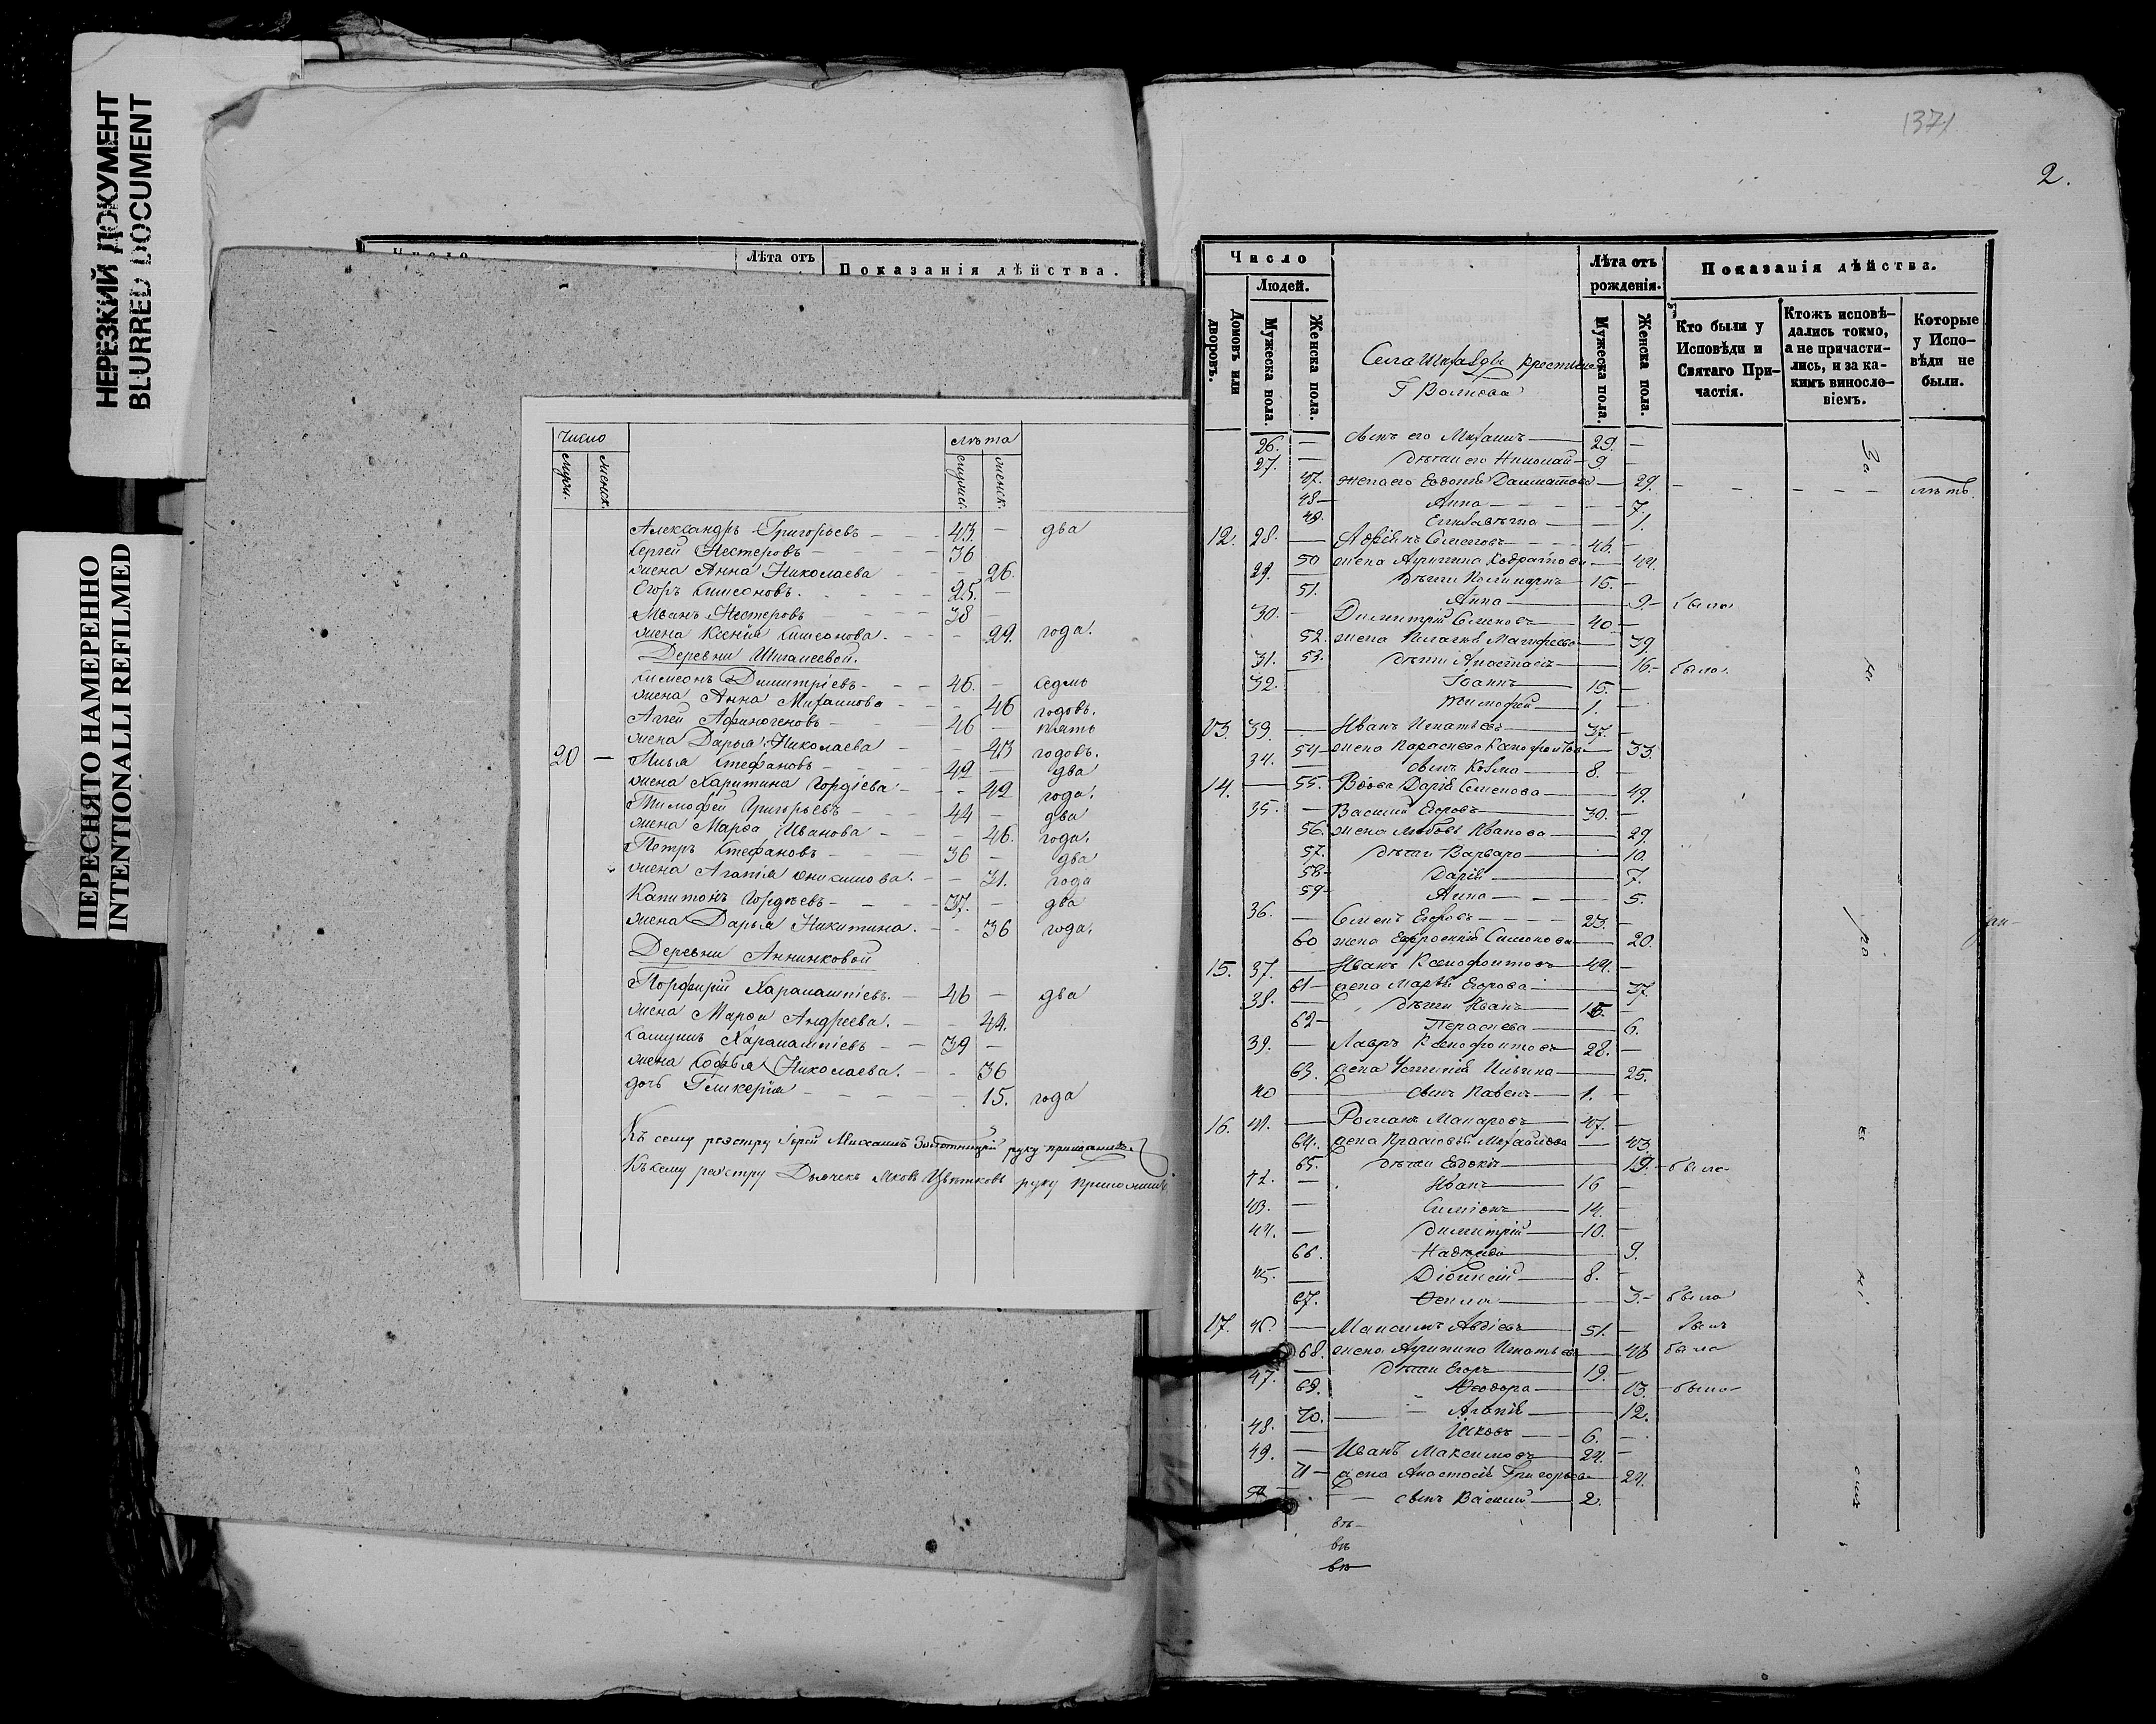 НЕРЕЗКИЙ ДОКУМЕНТ
BLURRED DOCUMENT
ПЕРЕСНЯТО НАМЕРЕННО
INTENTIONALLI REFILMED
Лѣта отъ
Показанія дѣйства.
Число
лѣта
мужск. женск.
мужск. женск.
Александръ Григорьевъ - - 43 — два
Сергей Нестеровъ - - - 36
жена Анна Николаева - - 26.
Егоръ Симеоновъ. - - - 25. —
Иванъ Нестеровъ - - - 38 —
жена Ксенія Симеонова. - - 29. года.
Деревни
Симеонъ Димитріевъ - - 46. — седмь
жена Анна Михаилова - - 46 годовъ.
Аггей Афиногеновъ - - 46 — пять
жена Дарья Николаева - - 43 годовъ.
20 — Илья Стефановъ - - - 42 — два
жена Харитина Гордіева - - 42 года.
Тимофей Григорьевъ - - 44 — два
жена Марѳа Иванова - - - 46. года.
Петръ Стефановъ - - - 36 — два
жена Агапія - - 31. года
Капитонъ Гордѣевъ - - - 37. — два
жена Дарья Никитина. - - 36 года.
Деревни Аннинковой
Порфирій Харалампіевъ. - 46 — два
жена Марѳа Андреева. - - 44.
Харалампіевъ - - 39 —
жена Софья Николаева. - - 36
дочь Гликерія - - - - 15. года
Къ сему реэстру Іерей Михаилъ руку приложилъ
Къ сему реэстру Дьячекъ Яковъ Цвѣтковъ руку приложилъ.
1371
2.
Число
Лѣта отъ рожденія.
Показанія дѣйства.
Людей.
Домовъ или дворовъ.
Мужеска пола.
Женска пола.
Мужеска пола.
Женска пола.
Кто были у Исповѣди и Святаго Причастія.
Ктожъ исповѣдались токмо, а не причастились, и за какимъ винословіемъ.
Которые у Исповѣди не были.
Села крестьяне
Г Волкова
26. — сынъ его Михаилъ — 29. —
27. — дѣти его Николай — 9. —
47. жена его Евдокія — 29. - - - - - лѣтъ.
48 — Анна - - - - 7.
49. Елисавета — 1.
12. 28. — Семеновъ - - - 46. —
50 жена Агрипина — 44.
29. дѣти — 15. —
51. Анна — 9. — была.
30. — Димитрій Семеновъ — 40 —
52. жена Пелагія — 39.
31. 53. дѣти Анастасія — 16. — была.
32. Іоаннъ — 15. —
Тимофей — 1. —
13. 33. — Иванъ Игнатьевъ — 37. —
54 — жена Параскева Ксенофонтова — 33.
34. — сынъ Козма — 8. —
14. — 55. — Вдова Дарія Семенова — 49.
35. — Василій Егоровъ — 30. —
56. жена Любовь Иванова — 29.
57. дѣти Варвара — 10.
58 — Дарія — 7.
59 — Анна - - - 5.
36. — Семенъ Егоровъ - - - 23. —
60 жена Евфросинія Симеонова — 20.
15. 37. — Иванъ Ксенофонтовъ — 44. —
61 — жена Марія Егорова — 37.
38. — дѣти Иванъ — 15. —
62 — Параскева — 6.
39. — Лавръ Ксенофонтовъ — 28. —
63. жена Устинія Ильина — 25.
40 — сынъ Павелъ — 1. —
16. 41. — Романъ Макаровъ — 47. —
64. жена Прасковья Михайлова — 43.
65. дѣти Евдокія — 19. — была
42. — Иванъ — 16 —
43. — Симеонъ — 14. —
44. — Димитрій — 10. —
66. Надежда — 9.
45. — Діонисій — 8. —
67. Ѳекла — 3. — была
17. 46. — Максимъ Авдіевъ — 51. — былъ
68. жена Агрипина Игнатьева — 46 была
47. — дѣти Егоръ — 19. —
69. Ѳеодора — 13. — была
70. — Агапія — 12.
48. — Іаковъ — 6. —
49. — Иванъ Максимовъ — 24. —
71 — жена Анастасія Григорьева — 24.
50 — сынъ Василій — 2. —
въ —
въ
въ